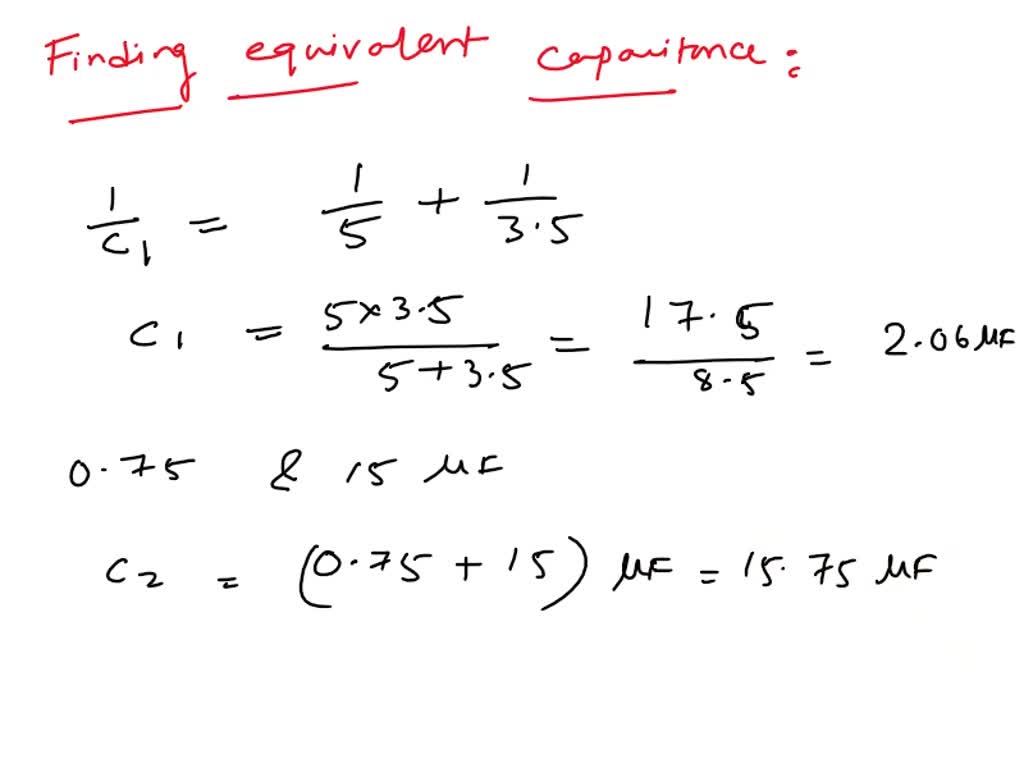 Finding equivalent capacitance:
1/C1 = 1/5 + 1/3.5
C1 = 5×3.5/5+3.5 = 17.5/8.5 = 2.06 μF
0.75 & 15 μF
C2 = (0.75 + 15) μF = 15.75 μF